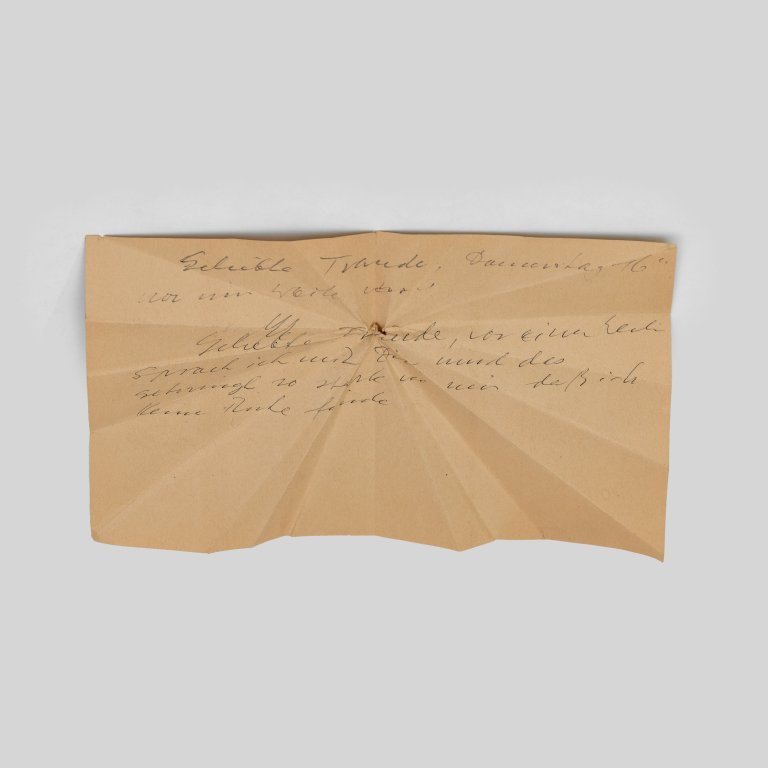 Geliebte Traude, Donnerstag 16
vor
Geliebte Traude, vor einer Weile
sprach ich mit Dir und das
schwingt so stark in mir daß ich
keine Ruhe finde